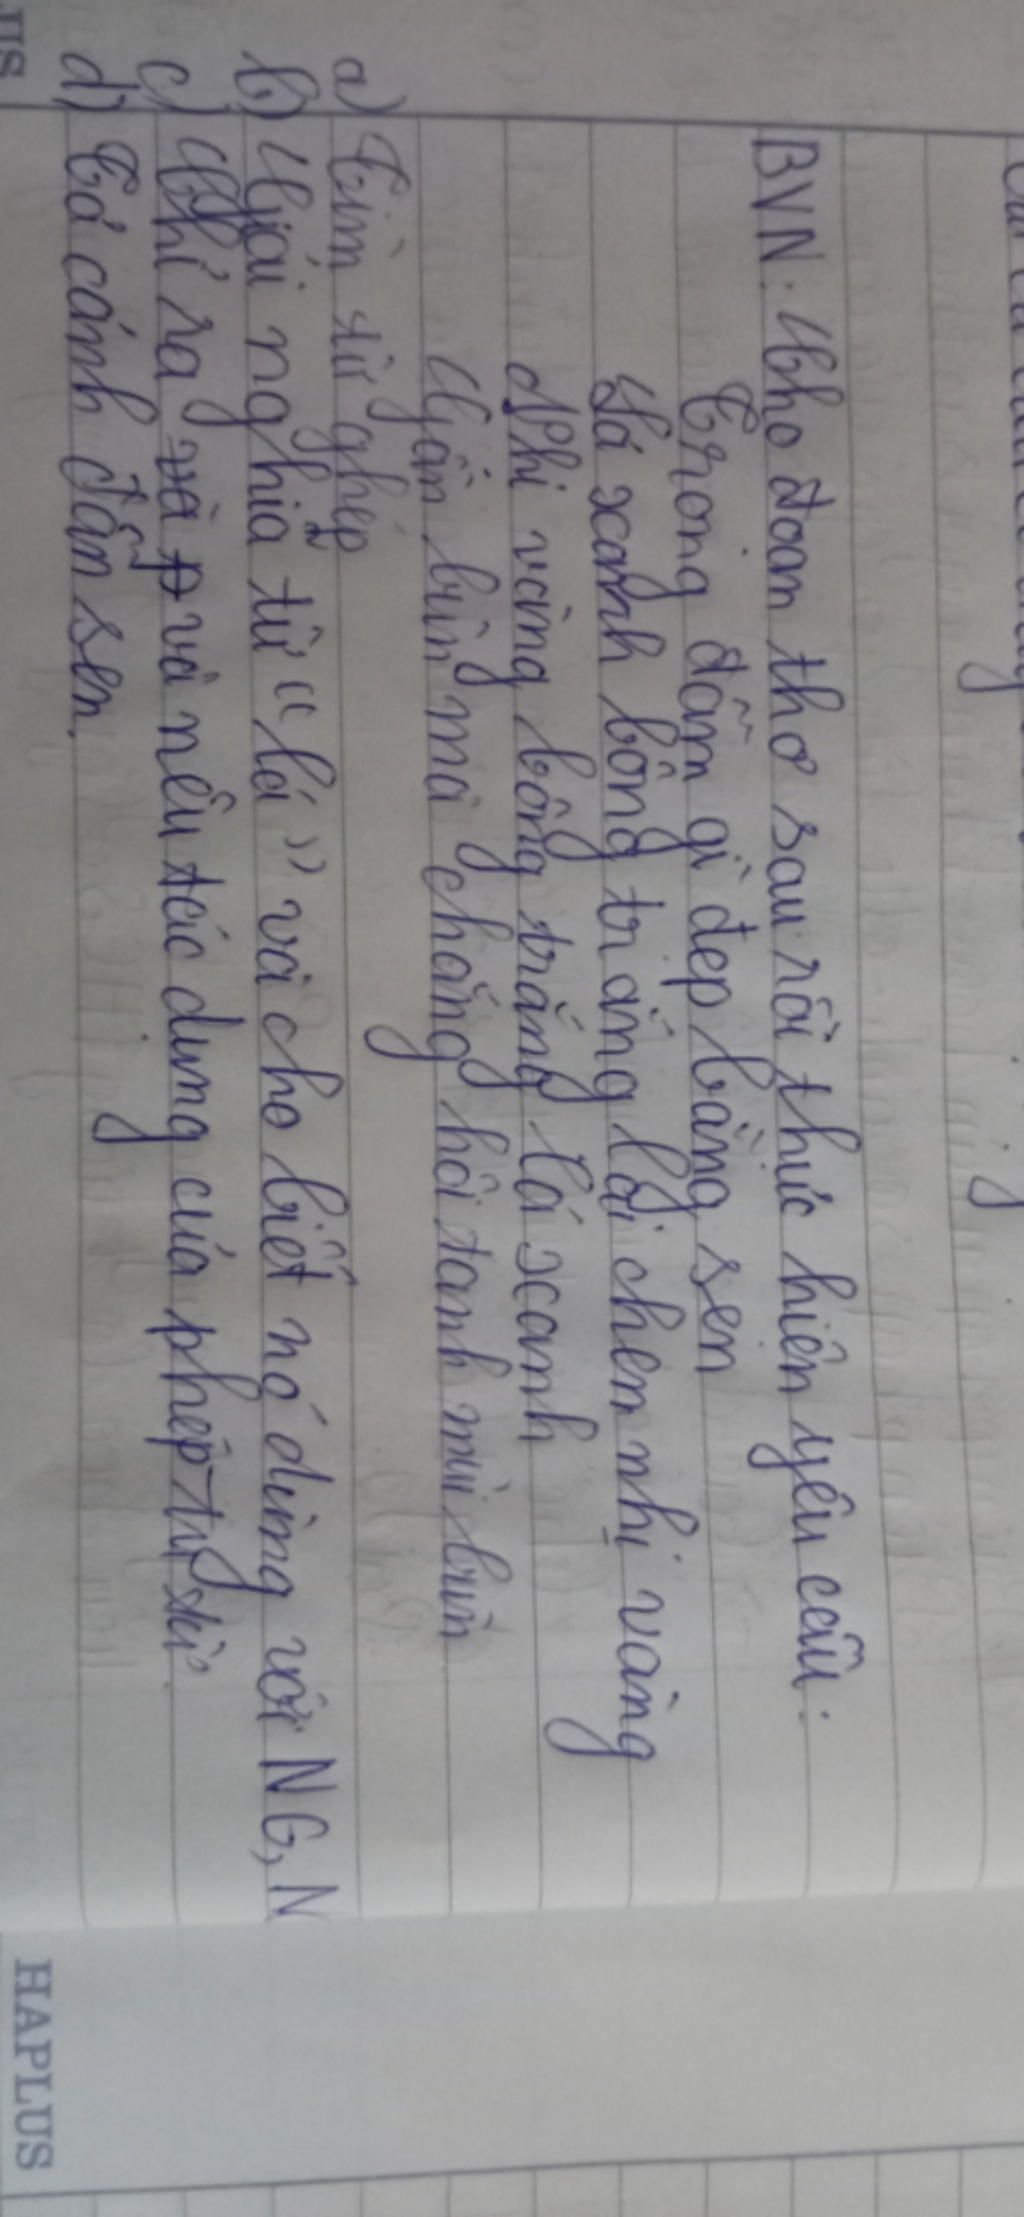 BVN: Cho đoạn thơ sau rồi thực hiện yêu cầu:
Trong đầm gì đẹp bằng sen
Lá xanh bông trắng lại chen nhị vàng
Nhị vàng bông trắng lá xanh
Gần bùn mà chẳng hôi tanh mùi bùn
a) Tìm từ ghép
b) Giải nghĩa từ "lá" và cho biết nó dùng với NG, N
c) Chỉ ra và nêu tác dụng của phép tu từ
d) Tả cánh đầm sen.
HAPLUS